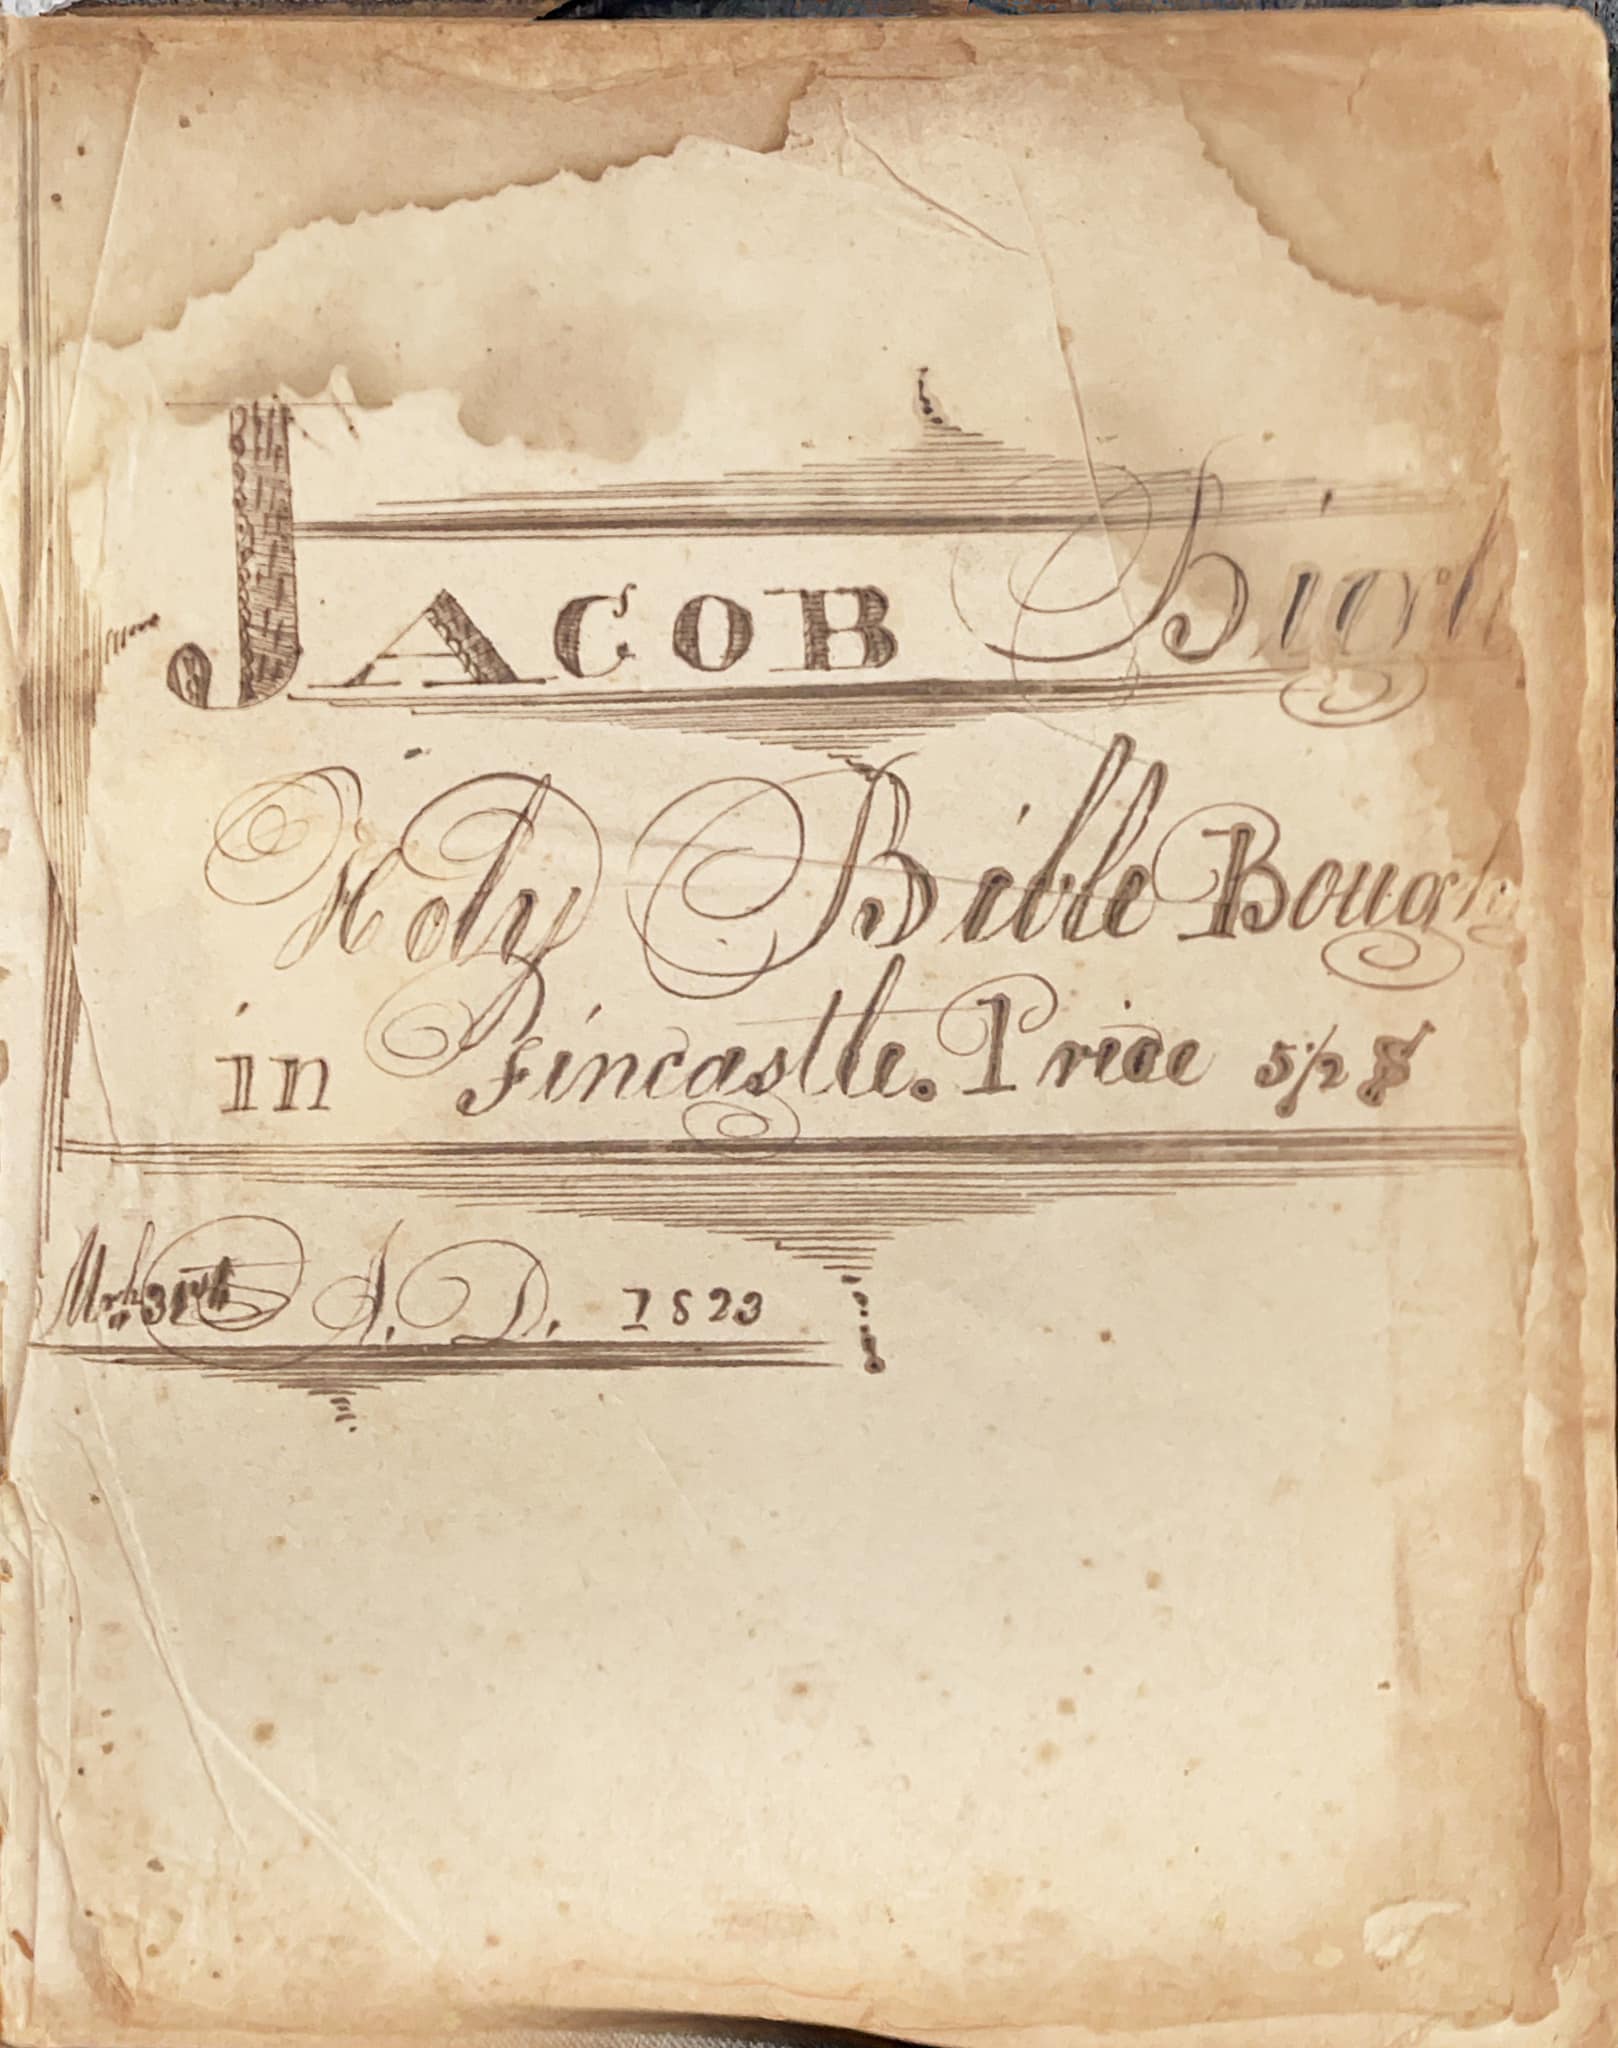 JACOB Bigl
Holy Bible Bought
in Fincastle. Price 5 1/2 $
Mrh 31st A. D. 1823